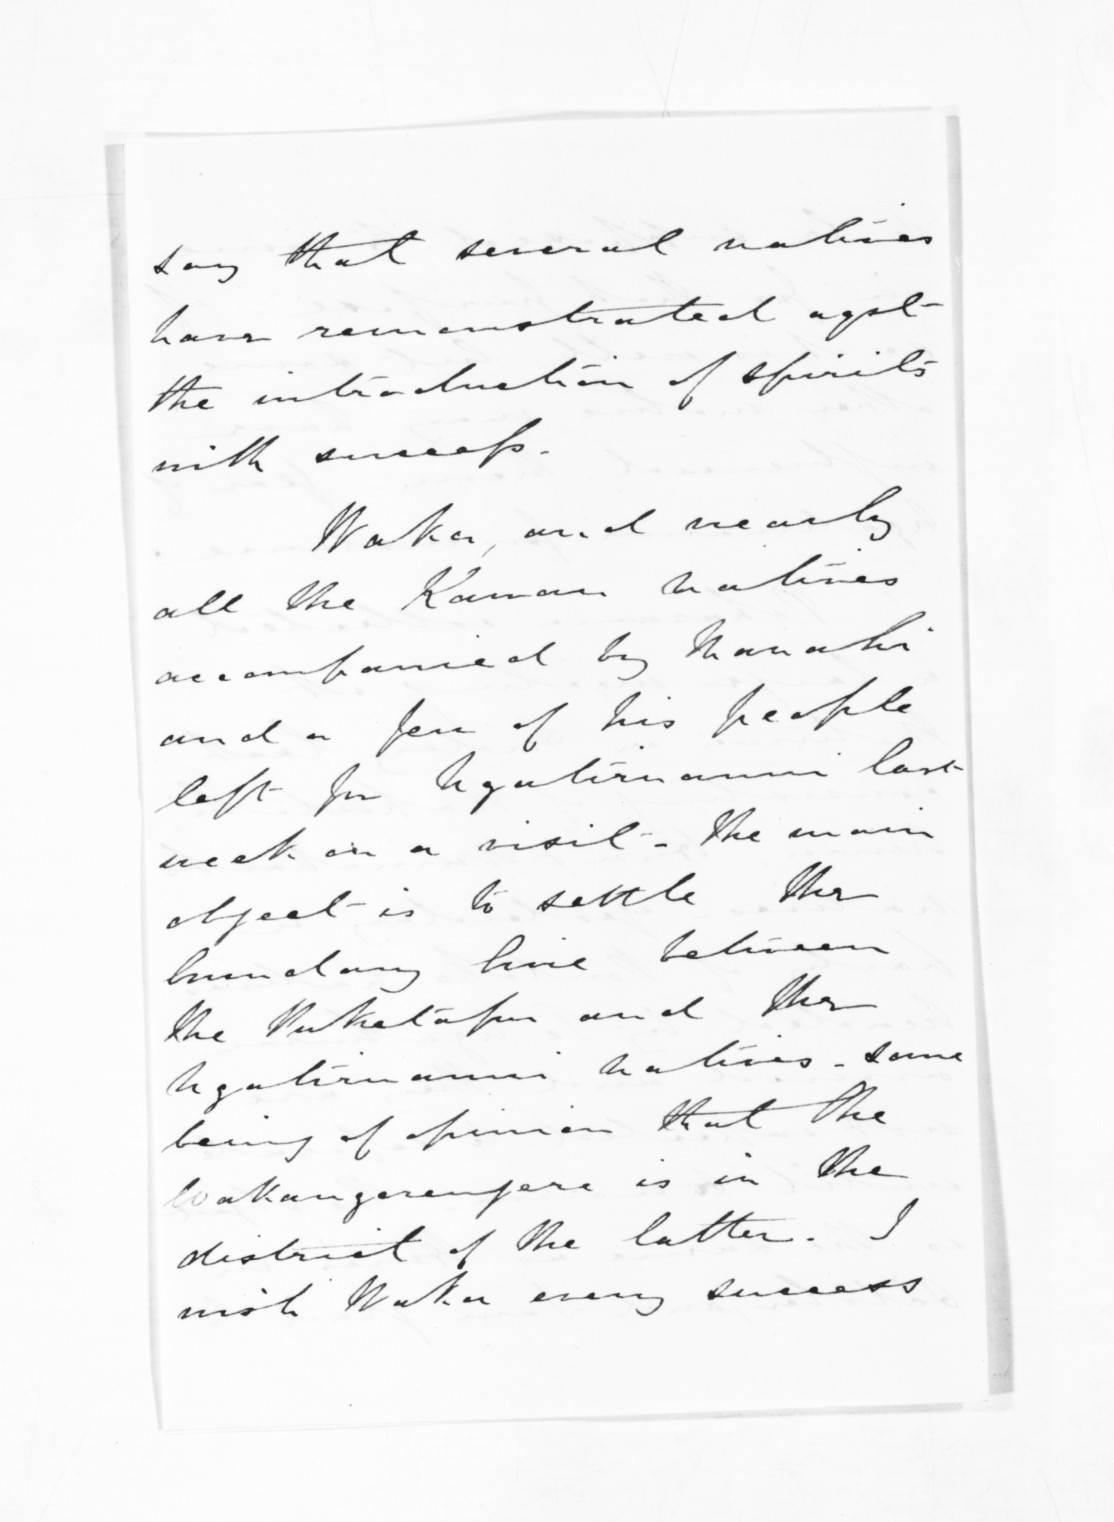 say that several natives
have remonstrated agst
the introduction of spirits
with success.
Waka, and nearly
all the Kawau natives
accompanied by Manahi
and a few of his people
left for Ngatiruanui last
week on a visit - The main
object is to settle the
boundary line between
the Puketapu and the
Ngatiruanui natives - some
being of opinion that the
is in the
district of the latter. I
wish Waka every success